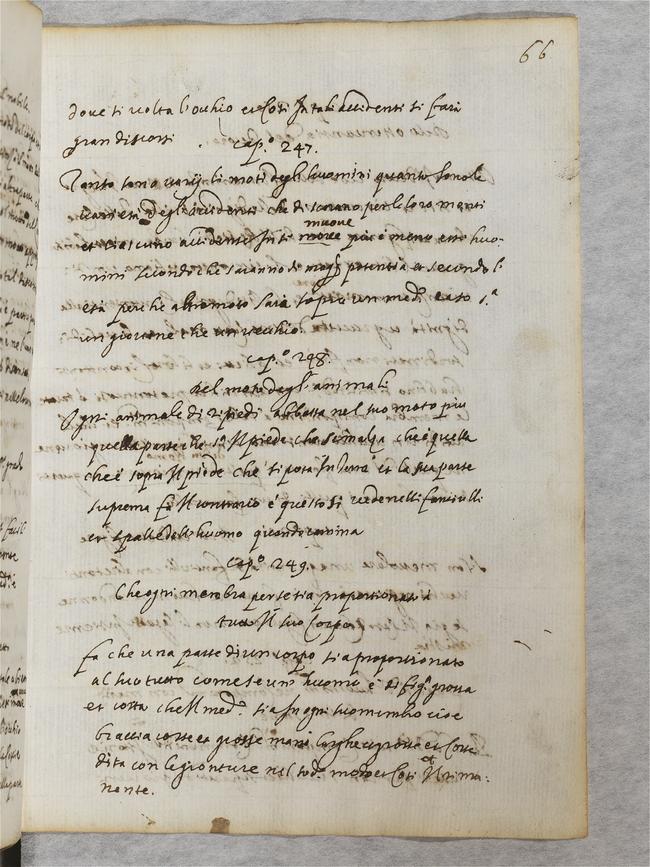 66
doue si uolta l'occhio et così in tali accidenti si farà
gran discorsi
cap.º 247.
Tanto sono uarij li moti degli huomini quanto sono le
uarietà degli accidenti che discorano per le loro menti
muoue
et ciascuno accidente in se moue più e meno essi huo-
mini secondo che saranno di magg. potentia et secondo l'
età perche altro moto farà sopra un med. caso
un giouane che un uecchio
cap.º 248.
Del moto degl' animali
Ogni animale di 2 piedi abbassa nel suo moto più
quella parte che sª il piede che s'inalza che è quella
che è sopra il piede che si posa in terra et la sua parte
suprema fa il contrario e questo si uede nelli fianchi
et spalle dell' huomo quando camina
cap.º 249.
Che ogni membra per se sia proportionata a
tutto il suo Corpo
fa che una parte di un corpo sia proportionato
al suo tutto come se un huomo è di fig.ª grossa
et corta che il med.º sia in ogni suo membro cioè
braccia corte et grosse mani larghe et grosse et corte
dita con le gionture nel sod.º modo et così il rima-
nente.